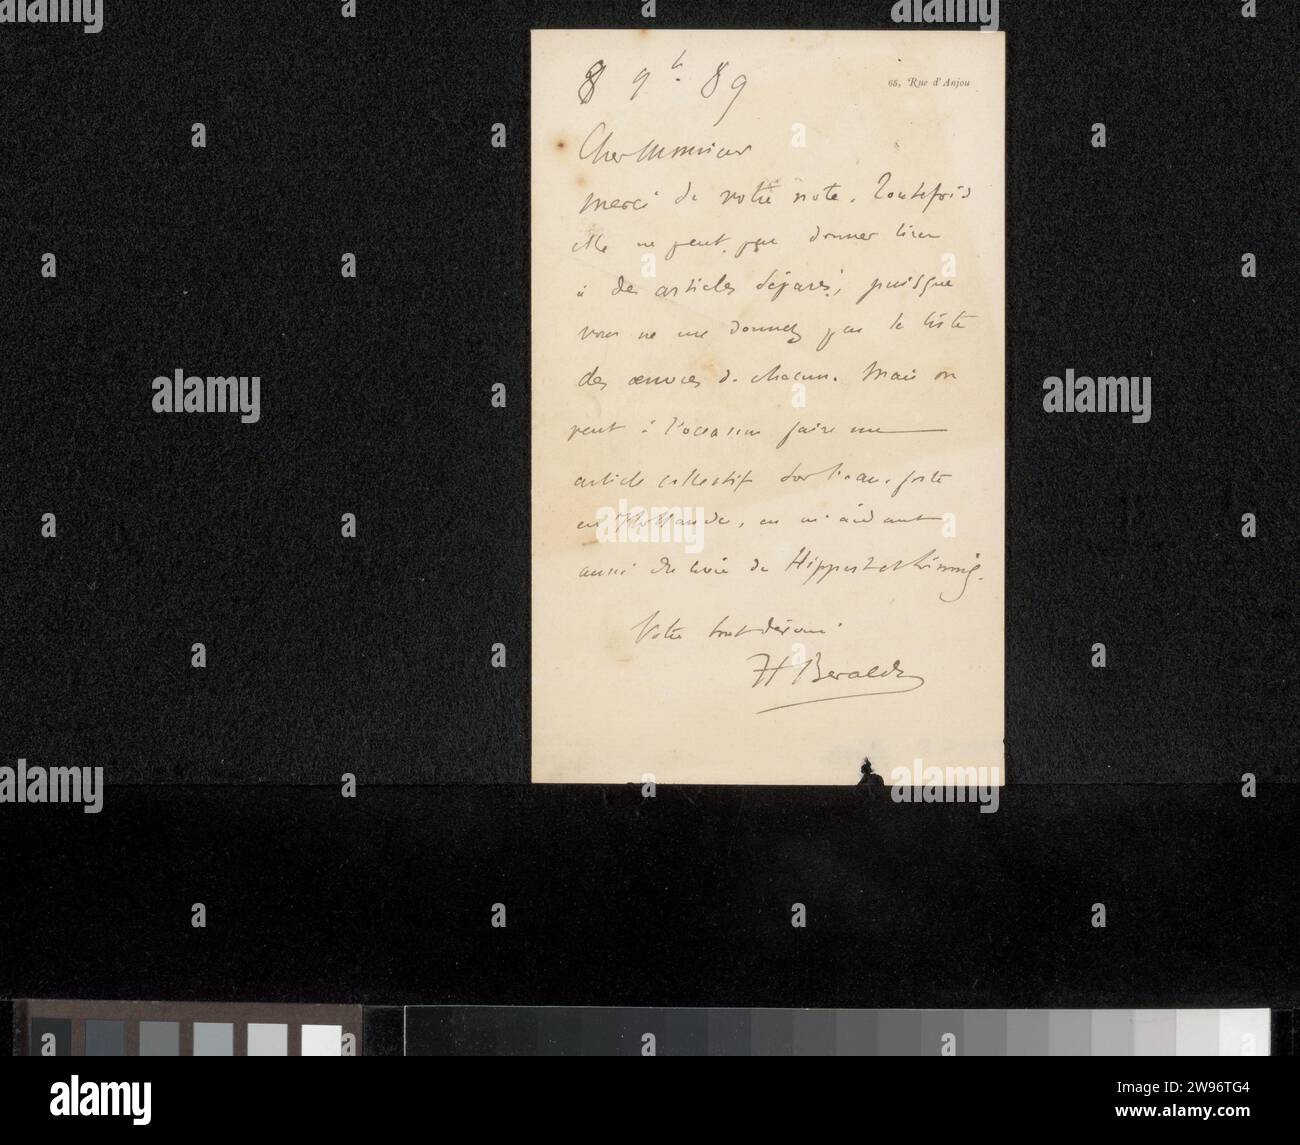 8 9h. 89
65, Rue d'Anjou
Cher Monsieur
merci de votre note. Toutefois
elle ne peut pas donner lieu
à des articles séparés, puisque
vous ne me donnez pas la liste
des œuvres de chacun. Mais on
peut à l'occasion faire un
article collectif sur l'eau-forte
en Hollande, en m'aidant
aussi du livre de Hippert et Linnig.
Votre tout dévoué
H Beraldi
alamy
Image ID: 2W96TG4
www.alamy.com